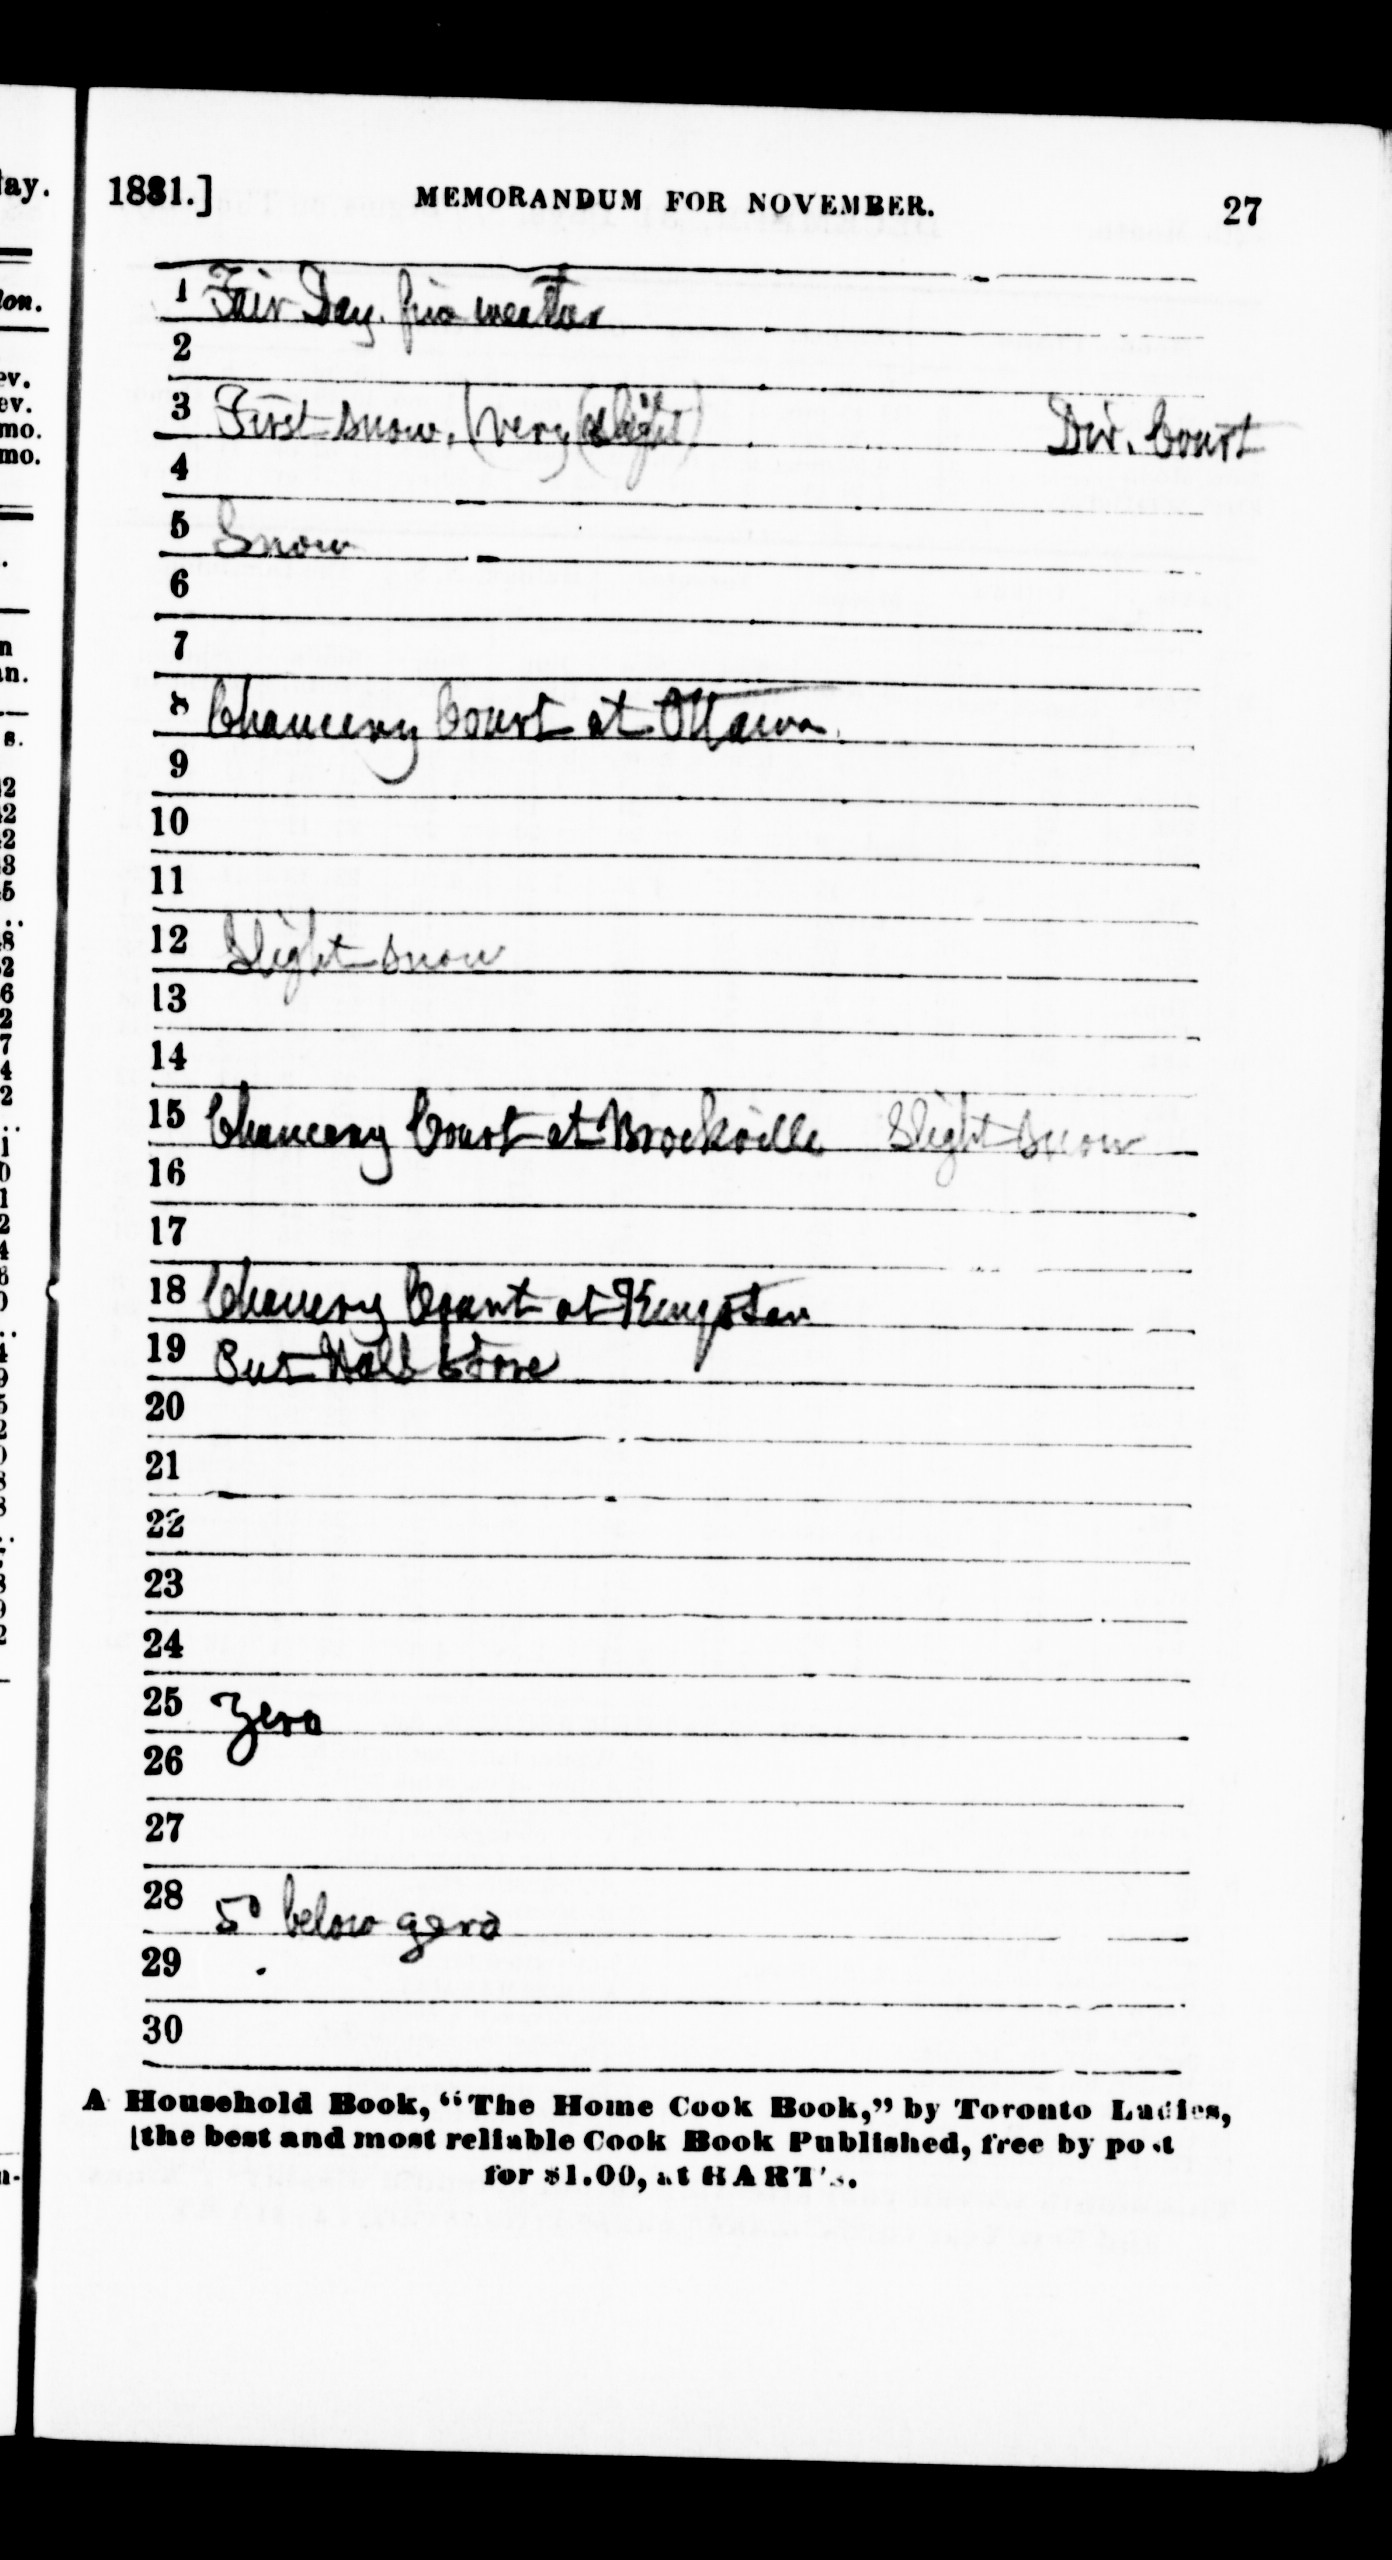 1881.] MEMORANDUM FOR NOVEMBER. 27
1 Fair Day. fine weather
2
3 First snow. (very (slight) Div. Court
4
5 Snow
6
7
8 Chancery Court at Ottawa.
9
10
11
12 Slight snow
13
14
15 Chancery Court at Brockville Slight snow
16
17
18 Chancery Court at Kingston
19 Stove
20
21
22
23
24
25 Zero
26
27
28 5° below zero
29
30
A Household Book, "The Home Cook Book," by Toronto Ladies,
the best and most reliable Cook Book Published, free by post
for $1.00, at HART's.